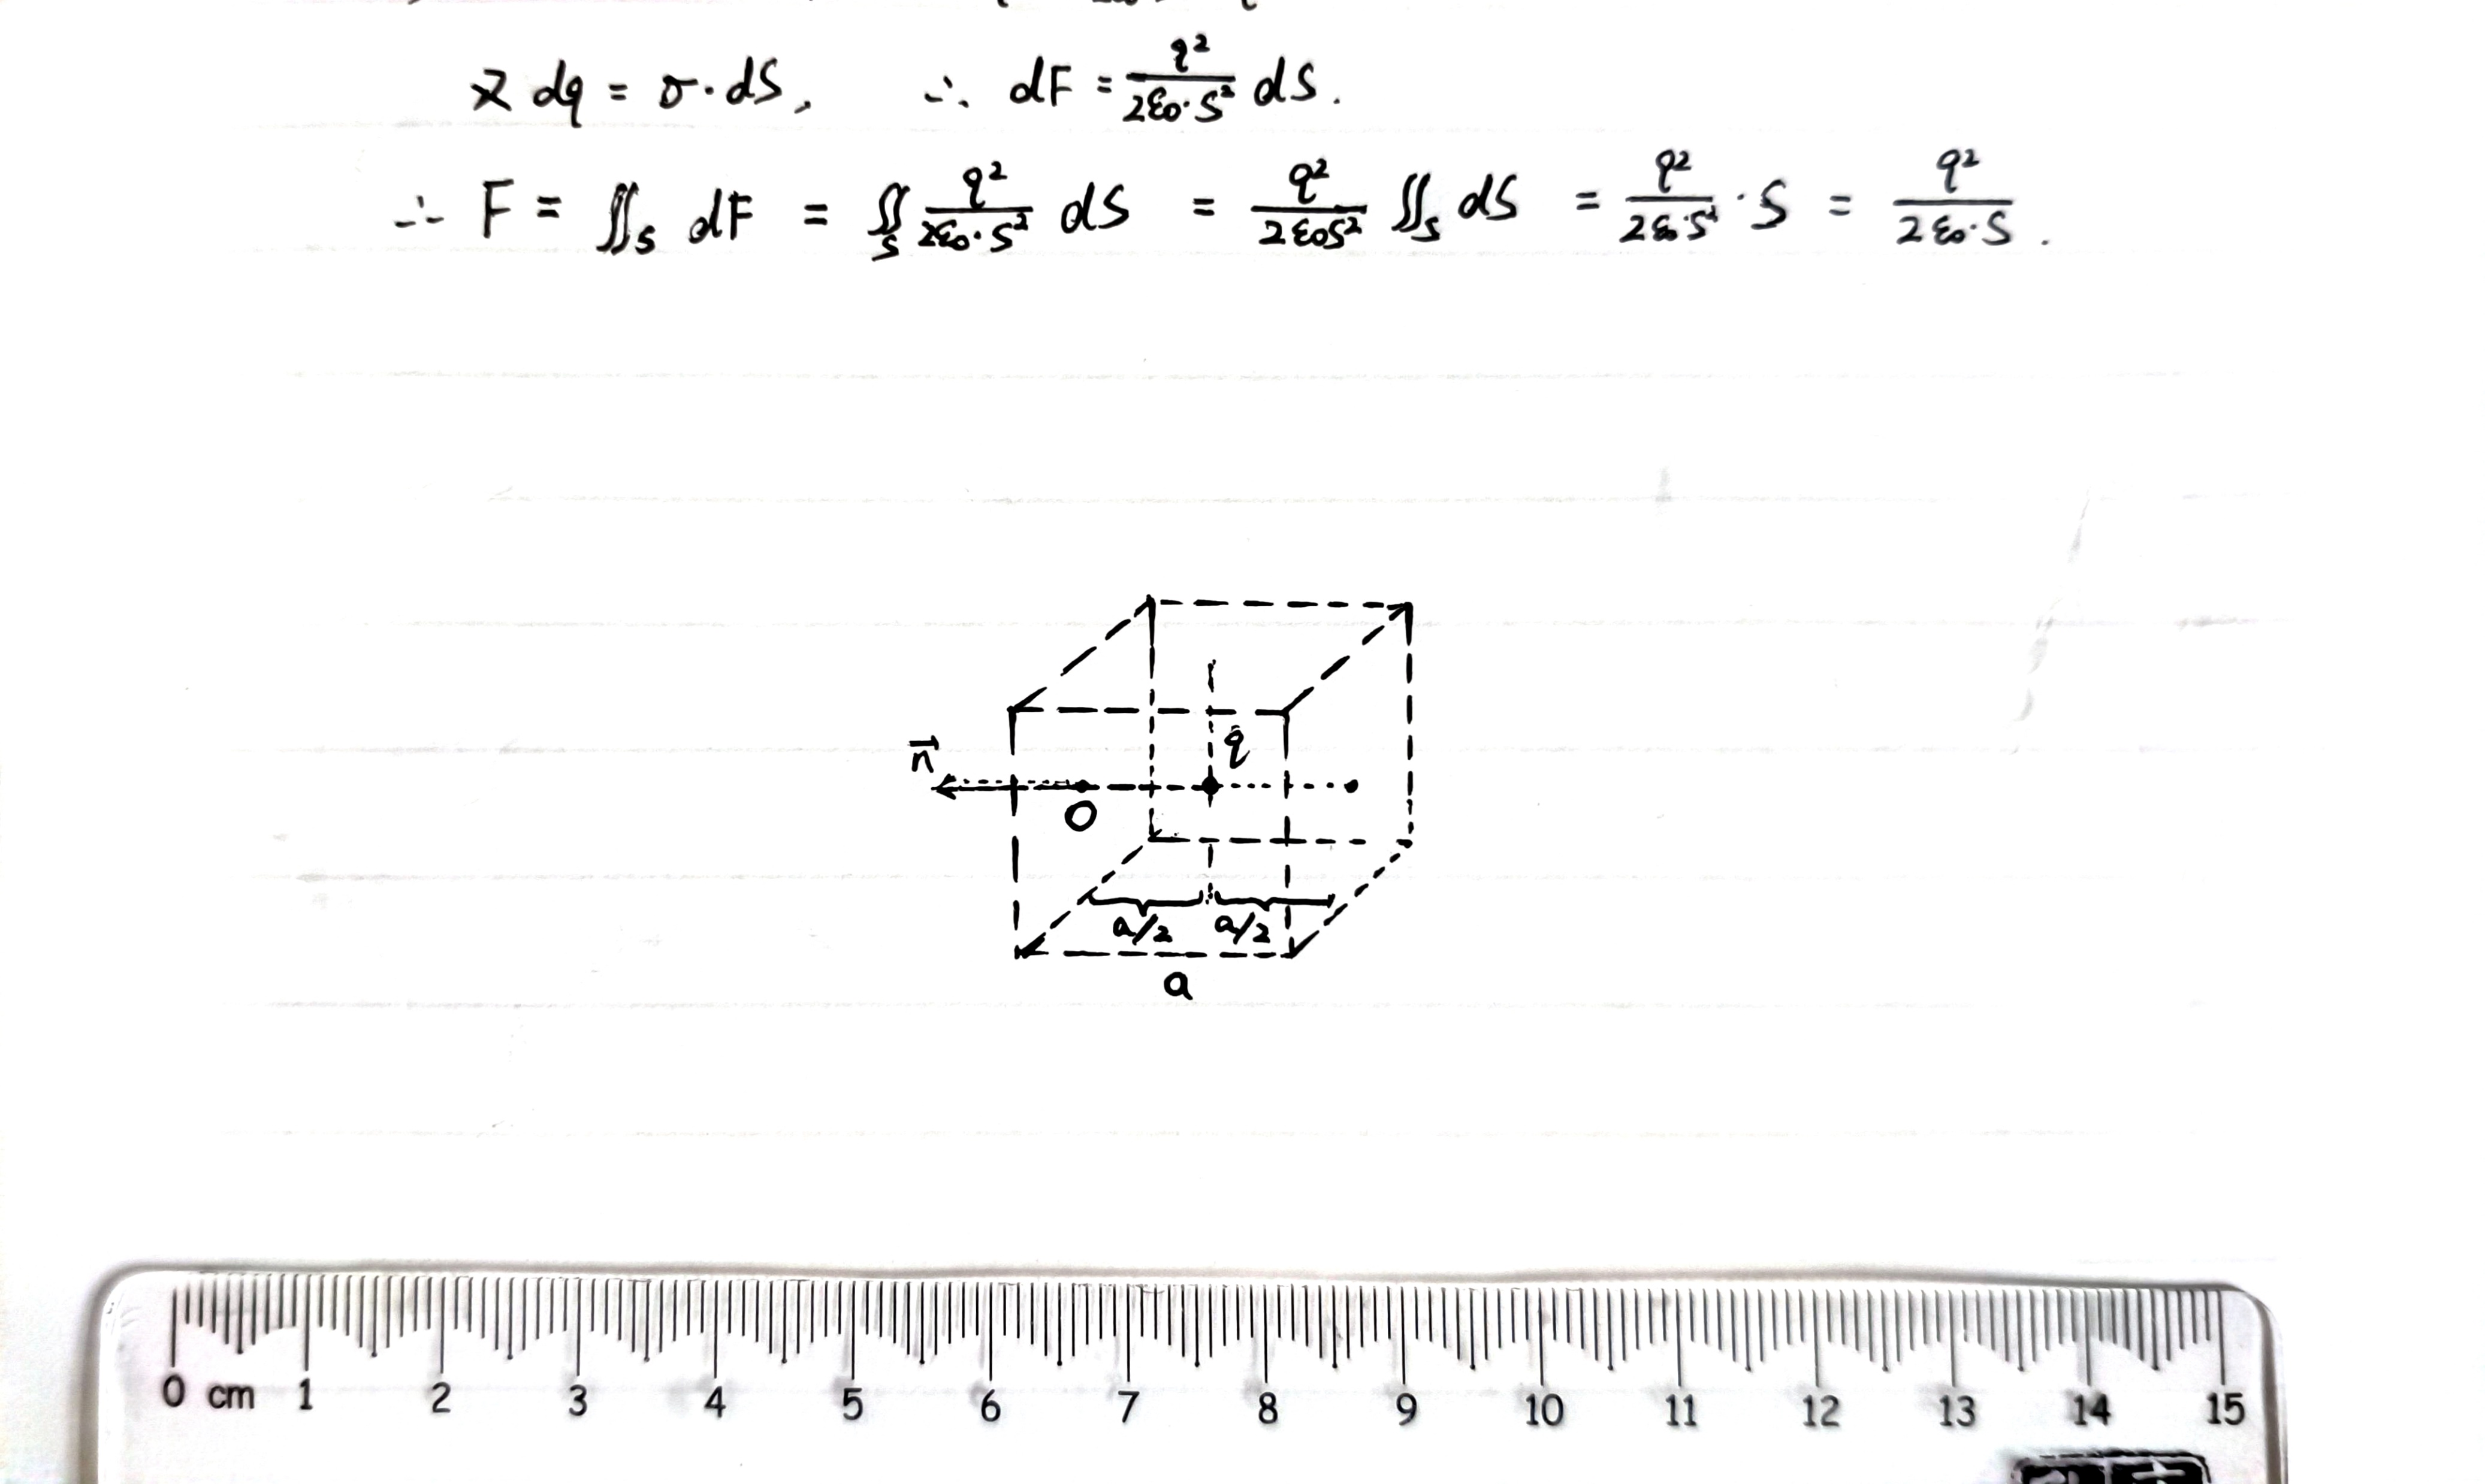 又 dq = σ·dS, ∴ dF = q²/(2ε₀·S²) dS.
∴ F = ∬_S dF = ∬_S q²/(2ε₀·S²) dS = q²/(2ε₀S²) ∬_S dS = q²/(2ε₀·S²)·S = q²/(2ε₀·S).
q
n⃗
O
a/2 a/2
a
0 cm 1 2 3 4 5 6 7 8 9 10 11 12 13 14 15